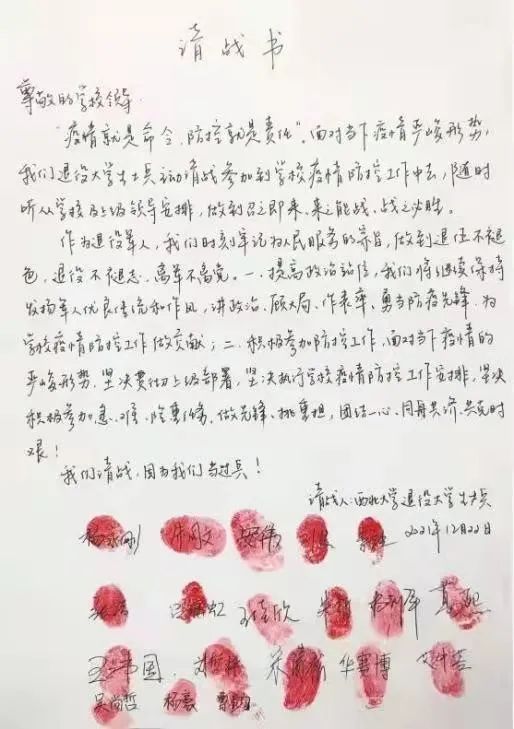 请战书
尊敬的学校领导:
“疫情就是命令、防控就是责任”。面对当下疫情严峻形势,
我们退役大学生士兵主动请战参加到学校疫情防控工作中去,随时
听从学校及上级领导安排,做到召之即来、来之能战、战之必胜。
作为退役军人,我们时刻牢记为人民服务的宗旨,做到退伍不褪
色、退役不褪志、离军不离党。一、提高政治站位,我们将继续保持
发扬军人优良传统和作风,讲政治、顾大局、作表率、勇当防疫先锋,为
学校疫情防控工作做贡献;二、积极参加防控工作,面对当下疫情的
严峻形势,坚决贯彻上级部署,坚决执行学校疫情防控工作安排,坚决
积极参加急、难、险、重任务,做先锋、挑重担,团结一心、同舟共济、共克时
艰!
我们请战,因为我们当过兵!
请战人:西北大学退役大学生士兵
2021年12月22日
华寰博
吴尚哲 杨毅